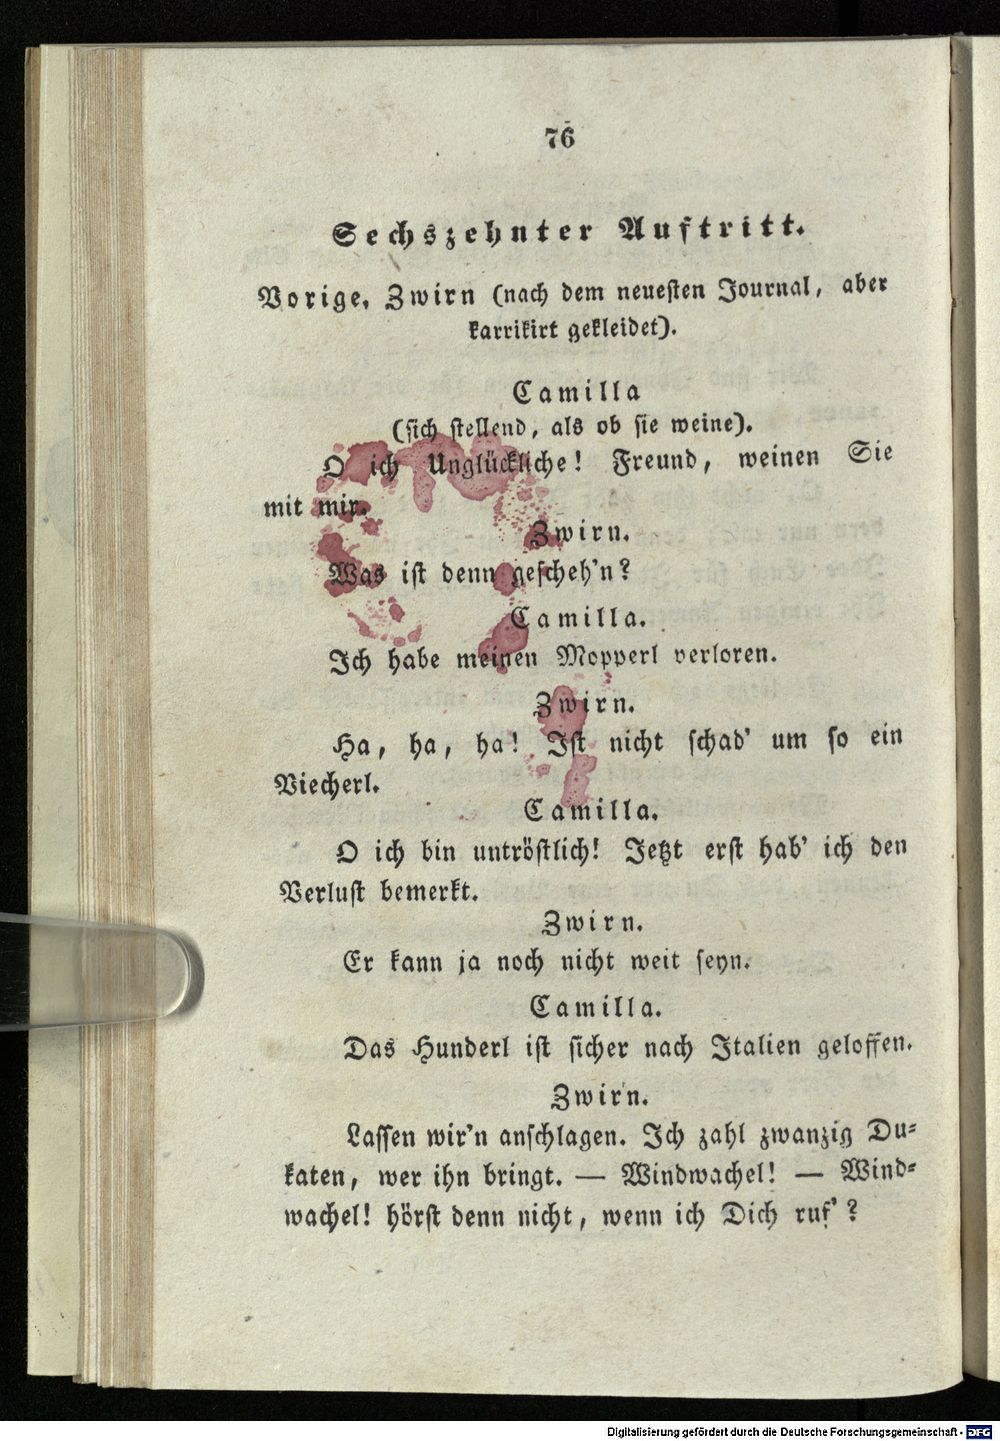 76
Sechszehnter Auftritt.
Vorige, Zwirn (nach dem neuesten Journal, aber
karrikirt gekleidet).
Camilla
(sich stellend, als ob sie weine).
O ich Unglückliche! Freund, weinen Sie
mit mir.
Zwirn.
Was ist denn gescheh'n?
Camilla.
Ich habe meinen Mopperl verloren.
Zwirn.
Ha, ha, ha! Ist nicht schad' um so ein
Viecherl.
Camilla.
O ich bin untröstlich! Jetzt erst hab' ich den
Verlust bemerkt.
Zwirn.
Er kann ja noch nicht weit seyn.
Camilla.
Das Hunderl ist sicher nach Italien geloffen.
Zwirn.
Lassen wir'n anschlagen. Ich zahl zwanzig Du-
katen, wer ihn bringt. — Windwachel! — Wind-
wachel! hörst denn nicht, wenn ich Dich ruf'?
Digitalisierung gefördert durch die Deutsche Forschungsgemeinschaft - DFG